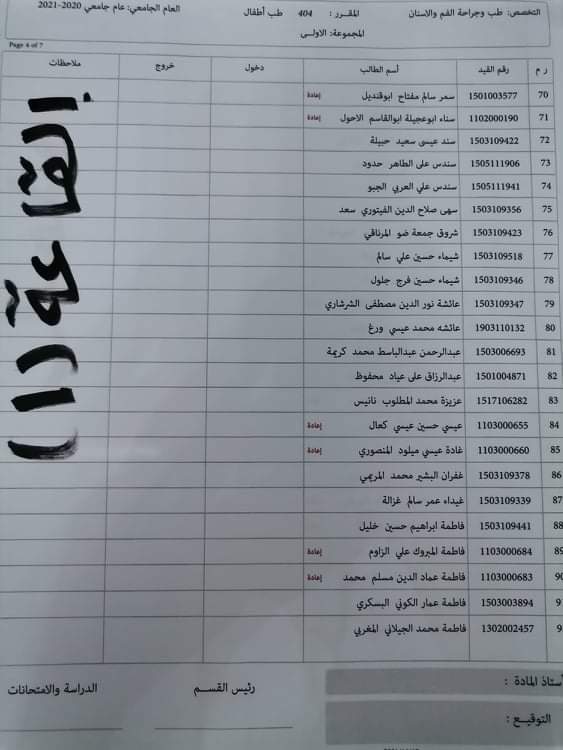 التخصص: طب وجراحة الفم والاسنان المقـرر : 404 طب أطفال العام الجامعي: عام جامعي 2020-2021
المجموعة: الاولى
Page 4 of 7
ر م رقم القيد أسم الطالب دخول خروج ملاحظات
70 1501003577 سمر سالم مفتاح ابوقنديل إعادة
71 1102000190 سناء ابوعجيلة ابوالقاسم الاحول إعادة
72 1503109422 سند عيسى سعيد حبيلة
73 1505111906 سندس على الطاهر حدود
74 1505111941 سندس علي العربي الجبو
75 1503109356 سهى صلاح الدين الفيتوري سعد
76 1503109423 شروق جمعة ضو المرناقي
77 1503109518 شيماء حسين علي سالم
78 1503109346 شيماء حسين فرج جلول
79 1503109347 عائشة نور الدين مصطفى الشرشاري
80 1903110132 عائشه محمد عيسي ورغ
81 1503006693 عبدالرحمن عبدالباسط محمد كريمة
82 1501004871 عبدالرزاق على عياد محفوظ
83 1517106282 عزيزة محمد المطلوب نانيس
84 1103000655 عيسي حسين عيسي كعال إعادة
85 1103000660 غادة عيسي ميلود المنصوري إعادة
86 1503109378 غفران البشير محمد المريمي
87 1503109339 غيداء عمر سالم غزالة
88 1503109441 فاطمة ابراهيم حسين خليل
89 1103000684 فاطمة المبروك علي الزاوم إعادة
90 1103000683 فاطمة عماد الدين مسلم محمد إعادة
9 1503003894 فاطمة عمار الكوني البسكري
9 1302002457 فاطمة محمد الجيلاني المغربي
القاعة (1)
أستاذ المادة : رئيس القسـم الدراسة والامتحانات
التوقيـع :